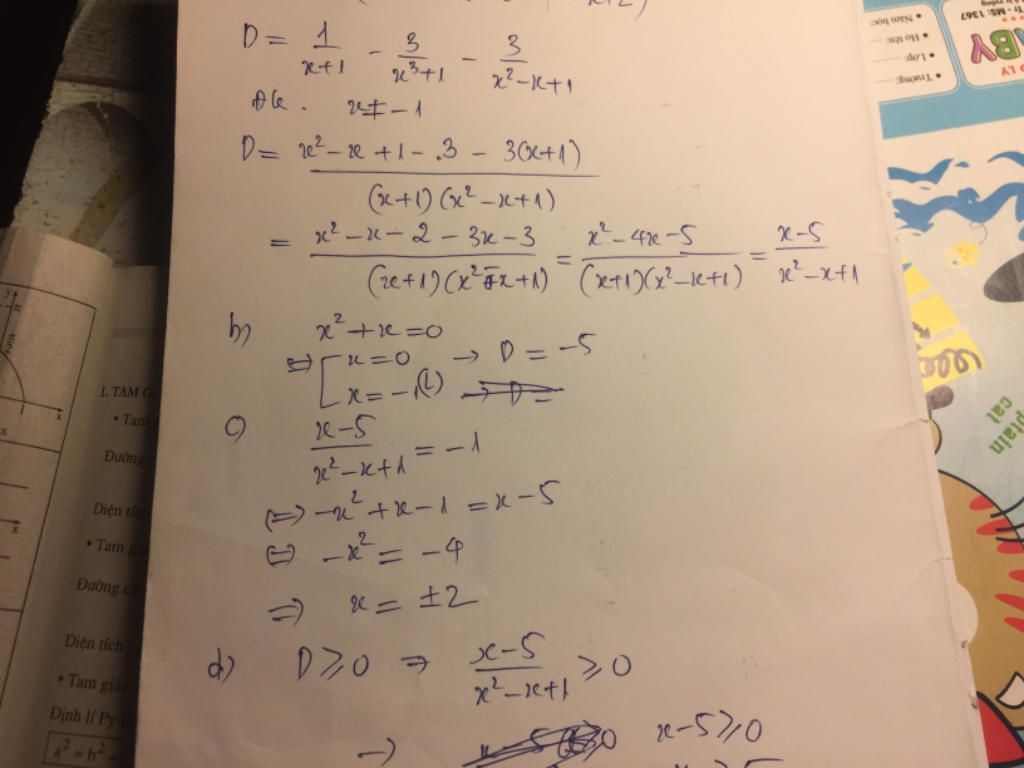 D = 1/(x+1) - 3/(x³+1) - 3/(x²-x+1)
Đk. x ≠ -1
D = (x² - x + 1 - .3 - 3(x+1)) / ((x+1)(x²-x+1))
= (x² - x - 2 - 3x - 3) / ((x+1)(x²-x+1)) = (x² - 4x - 5) / ((x+1)(x²-x+1)) = (x-5) / (x²-x+1)
b) x² + x = 0
⇔ [ x = 0 → D = -5
x = -1 (L) → D =
c) (x-5)/(x²-x+1) = -1
⇔ -x² + x - 1 = x - 5
⇔ -x² = -4
⇒ x = ±2
d) D ≥ 0 ⇒ (x-5)/(x²-x+1) ≥ 0
→ x - 5 ≥ 0
1. TAM
• Tam
Đường
Diện tích
• Tam giá
Đường c
Diện tích
• Tam giác
Định lí Py
a² = b²
MS: 1367
• Năm học:
• Họ tên:
• Lớp:
• Trường:
BY
LY
ptain
cat